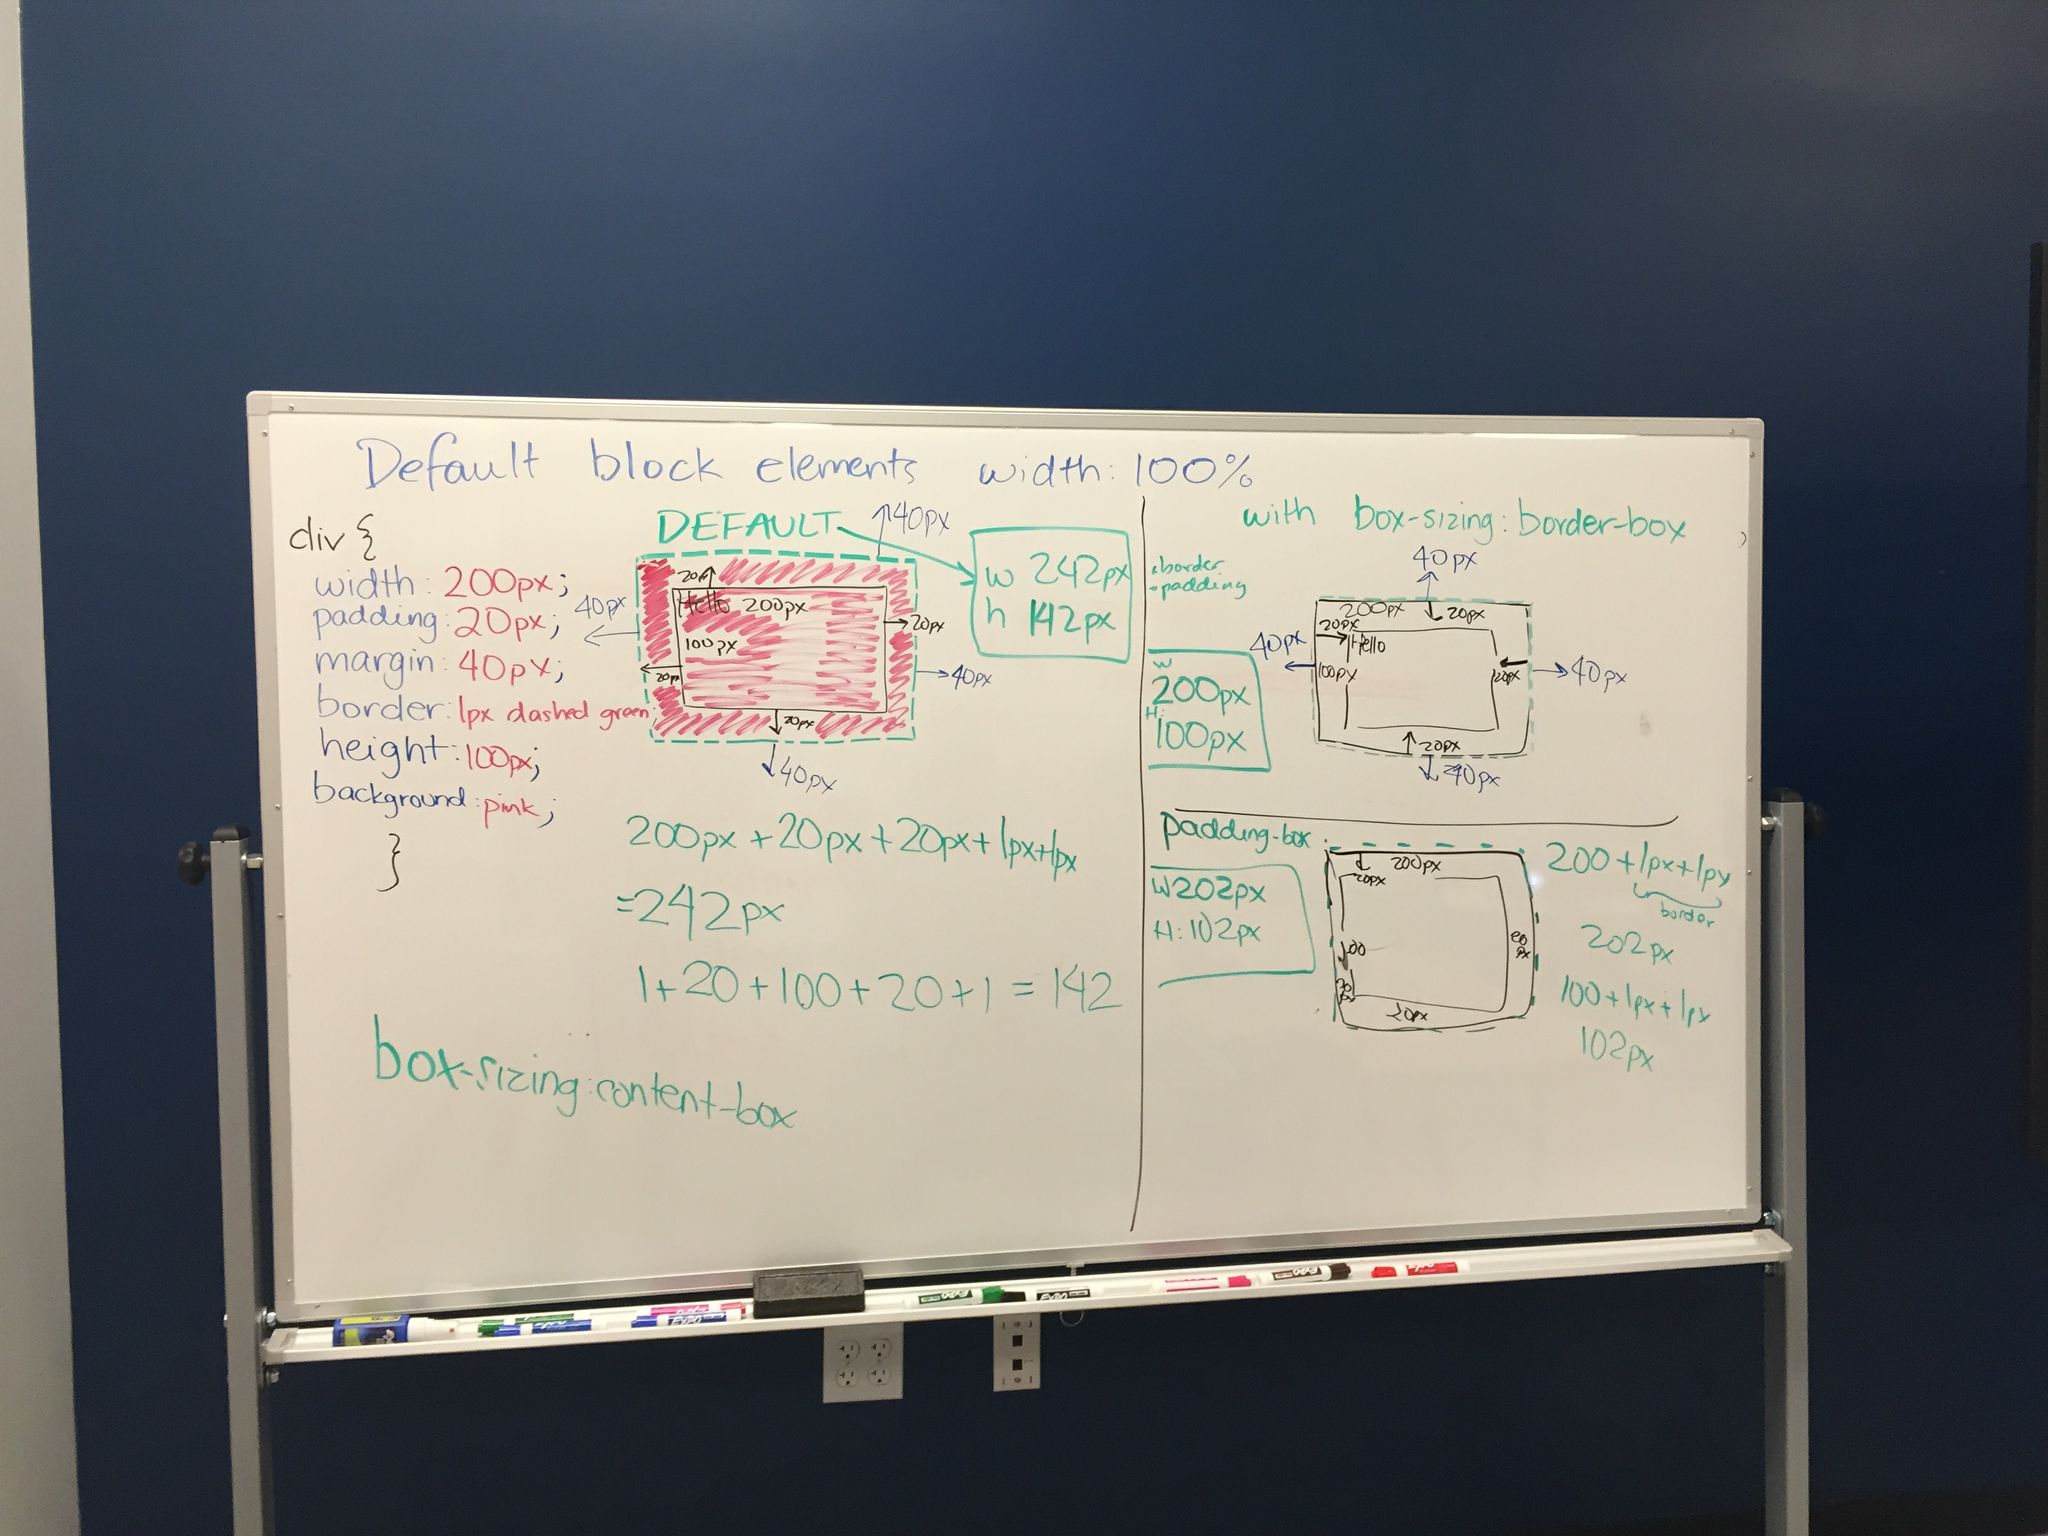 Default block elements width: 100%
div {
width: 200px;
padding: 20px;
margin: 40px;
border: 1px dashed green
height: 100px;
background: pink;
}
DEFAULT
40px
w 242px
h 142px
20px
Hello 200px
40px
20px
100px
20px
40px
20px
40px
200px + 20px + 20px + 1px+1px
=242px
1+20+100+20+1 = 142
box-sizing:content-box
with box-sizing: border-box
border
padding
40px
200px 20px
20px
Hello
40px
100px
20px
40px
20px
40px
W
200px
H:
100px
padding-box
W202px
H: 102px
200px
20px
100
20px
20px
20px
200+1px+1px
border
202px
100+1px+1px
102px
EXPO
EXPO
EXPO
EXPO